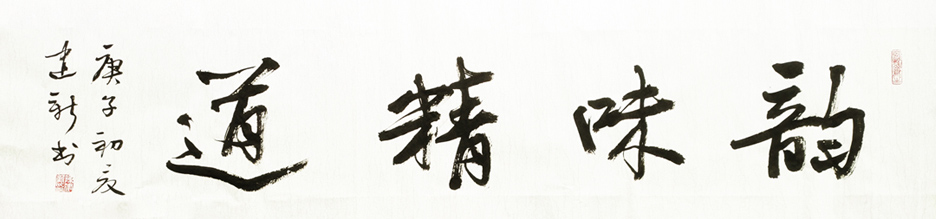 韵味精道
庚子初夏
建新书